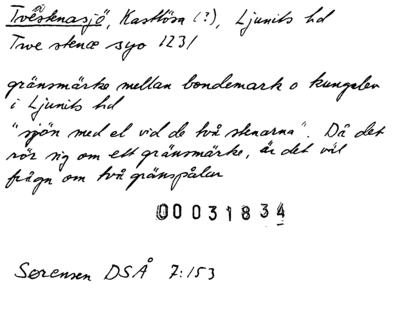 Tvéstenasjö, Kastlösa (?), Ljunits hd
Twe stence syo 1231
gränsmärke mellan bondemark o kungalev
i Ljunits hd
"sjön med el vid de två stenarna". Då det
rör sig om ett gränsmärke, är det väl
frågn om två gränspålar
00031834
Sørensen DSÅ 7:153